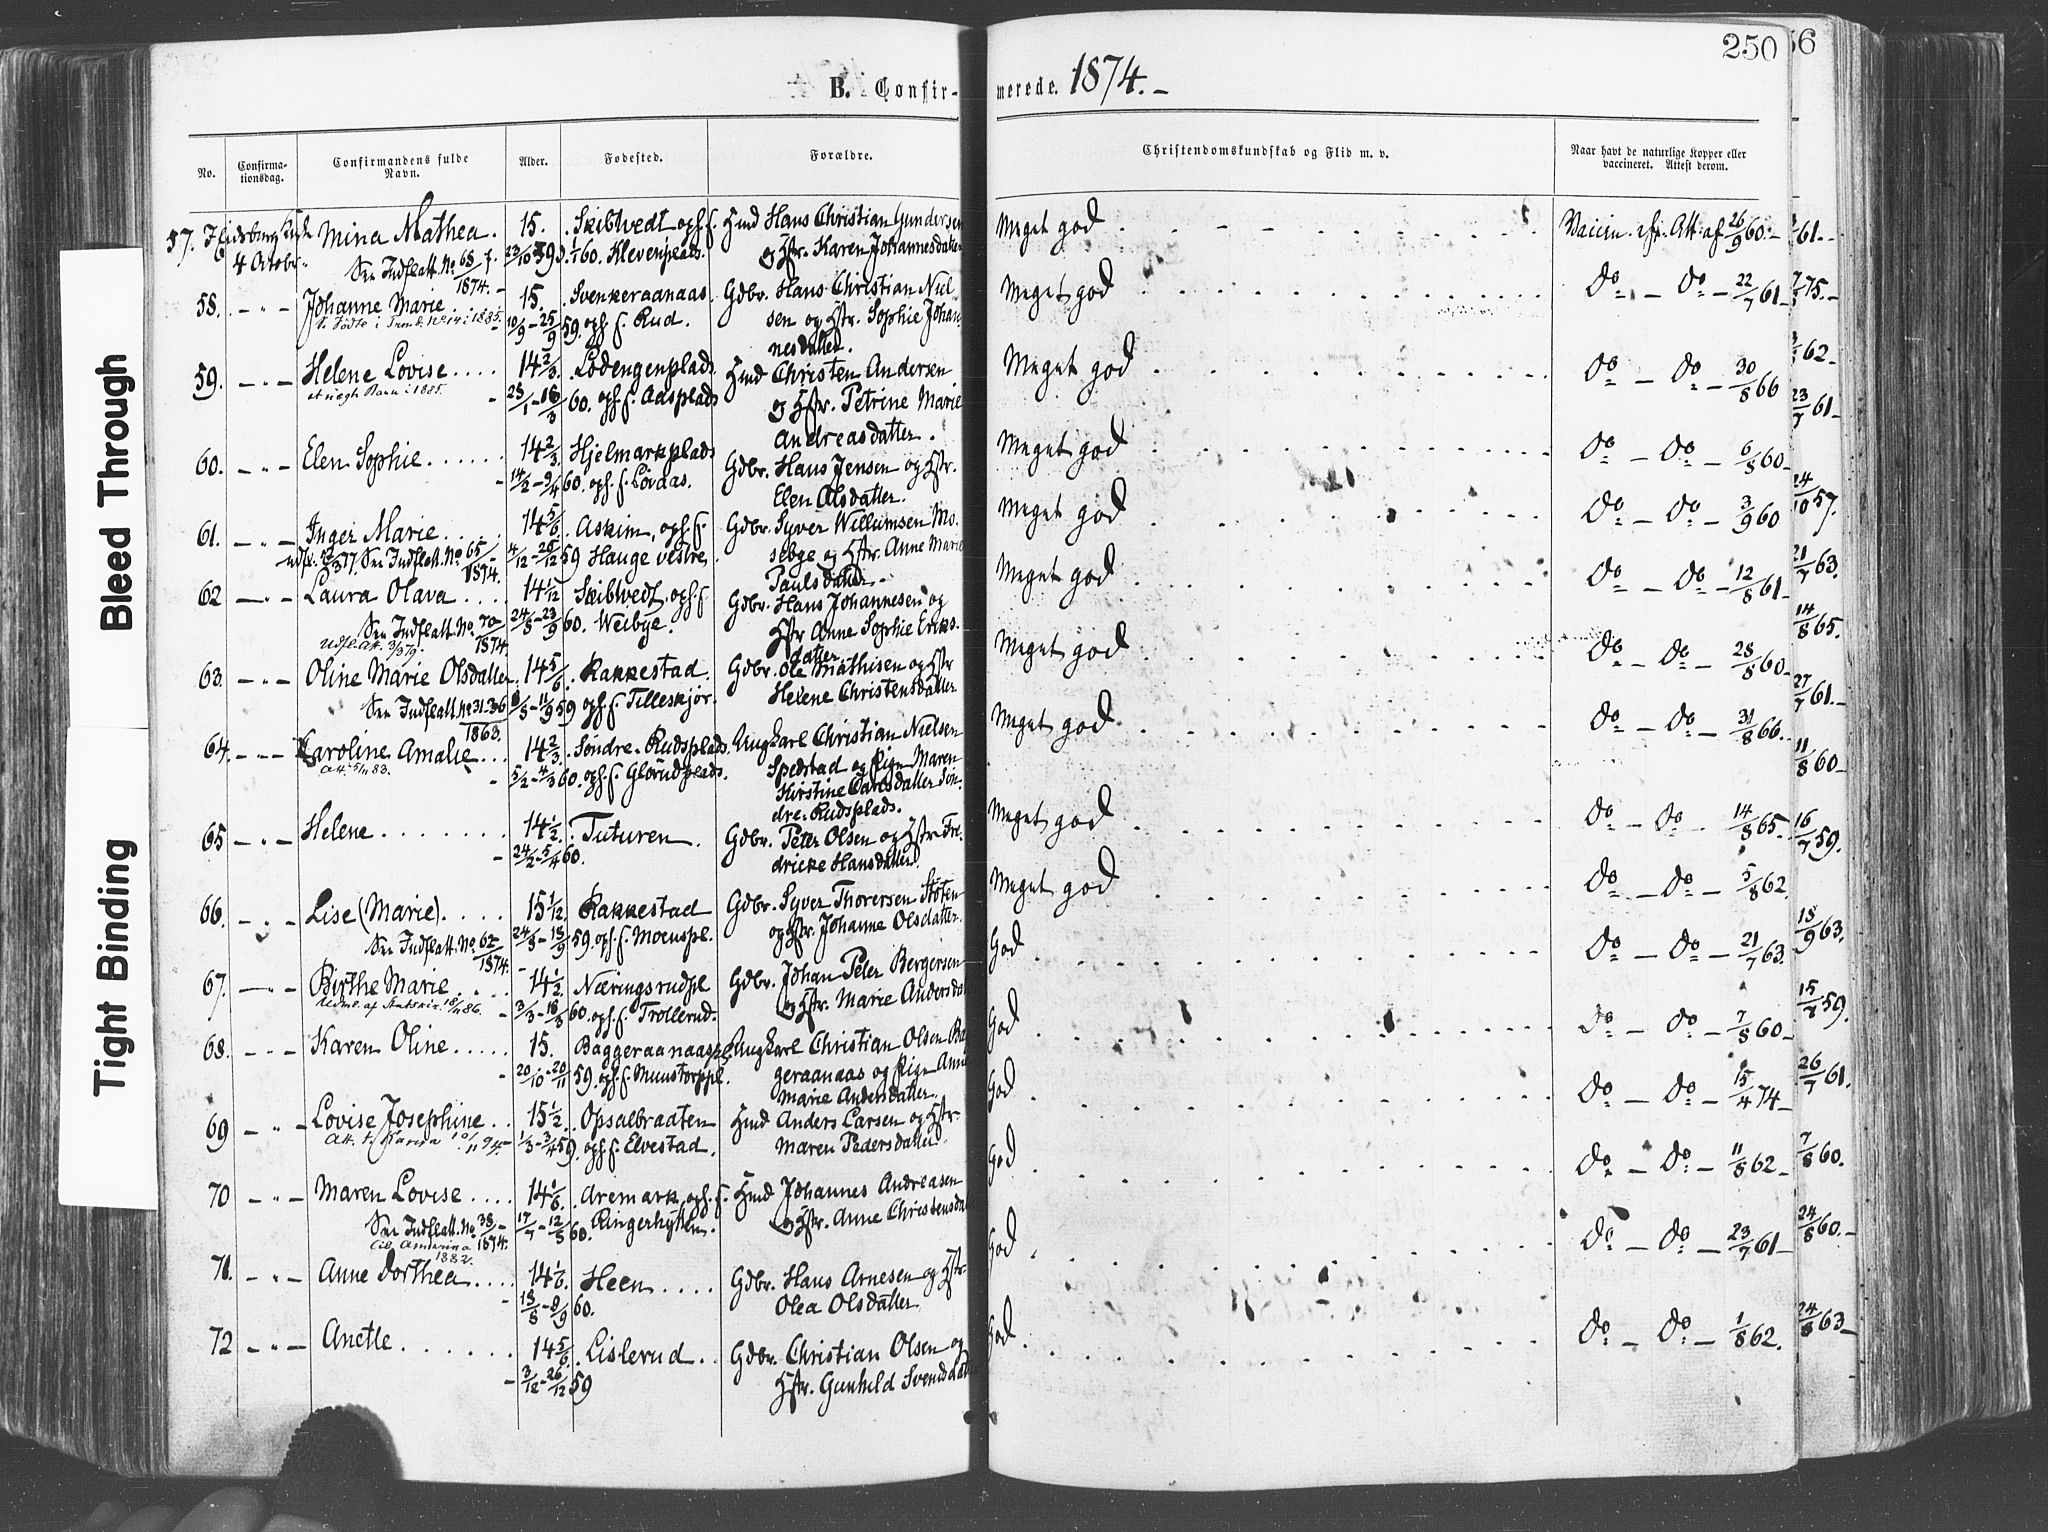 250
56
B. Confir-
merede. 1874.-
No.
Confirma-
tionsdag.
Confirmandens fulde
Navn.
Alder.
Fødested.
Forældre.
Christendomskundskab og Flid m. v.
Naar havt de naturlige Kopper eller
vaccineret. Attest derom.
57. I Eidsberg Kirke Mina Mathea. 15. Skibtvedt, oph. f. Hmd Hans Christian Gundersen Meget god Vaccin. Att. af 26/9 60.-
4 Octobr. Se Indflatt. No 68/1874.- 23/10 59. 1/1 60. Klevenplads. og Hstr. Karen Johannesdatter
58. - " - Johanne Marie 15. Svenkeraanaas Gdbr. Hans Christian Niel- Meget god Do - Do - 22/7 61-
1885. 10/9 - 25/9 59. oph. f. Rud. sen og Hstr. Sophie Johan-
nesdatter.
59. - " - Helene Lovise 14 2/3. Lodengenplads Hmd Christen Andersen Meget god Do - Do - 30/8 66
1885. 25/1 - 18/3 60. oph. f. Aasplads og Hstr. Petrine Marie
Andreasdatter.
60. - " - Elen Sophie 14 2/3. Hjelmarkplads Gdbr. Hans Jensen og Hstr. Meget god Do - Do - 6/8 60-
- 14/2 - 9/4 60. oph. f. Løvaas. Elen Olsdatter.
61. - " - Inger Marie 14 5/6. Askim, oph. f. Gdbr. Syver Willumsen Mo- Meget god Do - Do - 3/9 60
Se Indflatt. No 65/1874. 4/12 - 26/12 59 Hauge vestre. sebye og Hstr. Anne Marie
Paulsdatter.
62 - " - Laura Olava 14 1/12 Skibtvedt, oph. f. Gdbr. Hans Johannesen og Meget god Do - Do - 12/8 61-
Se Indflatt. No. 70/1874. 24/8 - 23/9 60. Weibye. Hstr Anne Sophie Eriks-
Udfl. Att. 3/3 79. datter.
63. - " - Oline Marie Olsdatter. 14 5/6. Rakkestad. Gdbr. Ole Mathisen og Hstr Meget god Do - Do - 28/8 60-
Se Indflatt. No 31-36/1863. 8/8 - 11/9 59 oph. f. Tilleskjør. Helene Christensdatter
64. - " - Karoline Amalie 14 2/3. Søndre-Rudsplads. Ungkarl Christian Nielsen Meget god Do - Do - 31/8 66.
Att. 5/11 83. - 5/2 - 4/3 60. oph. f. Glorudplads. Spedstad og Pige Maren
Kirstine Carlsdatter Søn-
dre-Rudsplads.
65 - " - Helene 14 1/2. Tuturen. Gdbr. Peter Olsen og Hstr Fre- Meget god Do - Do - 14/8 65.
- 24/2 - 5/4 60. dricke Hansdatter
66. - " - Lise (Marie). 15 1/12. Rakkestad Gdbr. Syver Thoresen Støten Meget god Do - Do - 5/8 62.
Se Indflatt. No. 62/1874. 24/8 - 18/9 59. oph. f. Moenspl. og Hstr. Johanne Olsdatter.
67. - " - Birthe Marie 14 1/2. Næringsrudpl Gdbr. Johan Peter Bergersen God Do - Do - 21/7 63.
Udml. af Statskir. 18/11 86. - 3/3 - 18/3 60. oph. f. Trollerud. og Hstr. Marie Andersdat
68. - " - Karen Oline 15. Baggeraanaaspl. Ungkarl Christian Olsen Bag God Do - Do - 7/8 60-
- 20/10 - 20/11 59. oph. f. Munstorppl. geraanaas og Pige Anne
Marie Andersdatter.
69 - " - Lovise Josephine 15 1/2. Opsalbraaten Hmd Anders Larsen og Hstr God Do - Do - 15/4 74-
1/3 - 3/4 59. oph. f. Elvestad. Maren Pedersdatter.
70 - " - Maren Lovise 14 1/6. Aremark, oph. f. Hmd Johannes Andreasen God Do - Do - 11/8 62-
Se Indflatt. No. 38/1874. 17/7 - 12/8 60. Ringerhytten. og Hstr. Anne Christensdat
til Amerika 1882.
71. - " - Anne Dorthea 14 1/6. Heen Gdbr. Hans Arnesen og Hstr. God Do - Do - 23/7 61-
- 18/8 - 9/9 60. Olea Olsdatter
72 - " - Anette 14 5/6. Lislerud. Gdbr. Christian Olsen og God Do - Do - 1/8 62.
- 3/12 - 26/12 59 Hstr. Gunhild Svendsdat
61.-
75.-
62-
23/7 61-
24/10 57.
21/7 63.
14/8 65.
27/7 61-
11/8 60-
16/7 59.
18/9 63.
15/7 59.
26/7 61.
7/8 60.
24/8 60.-
24/8 63-
Bleed Through
Tight Binding